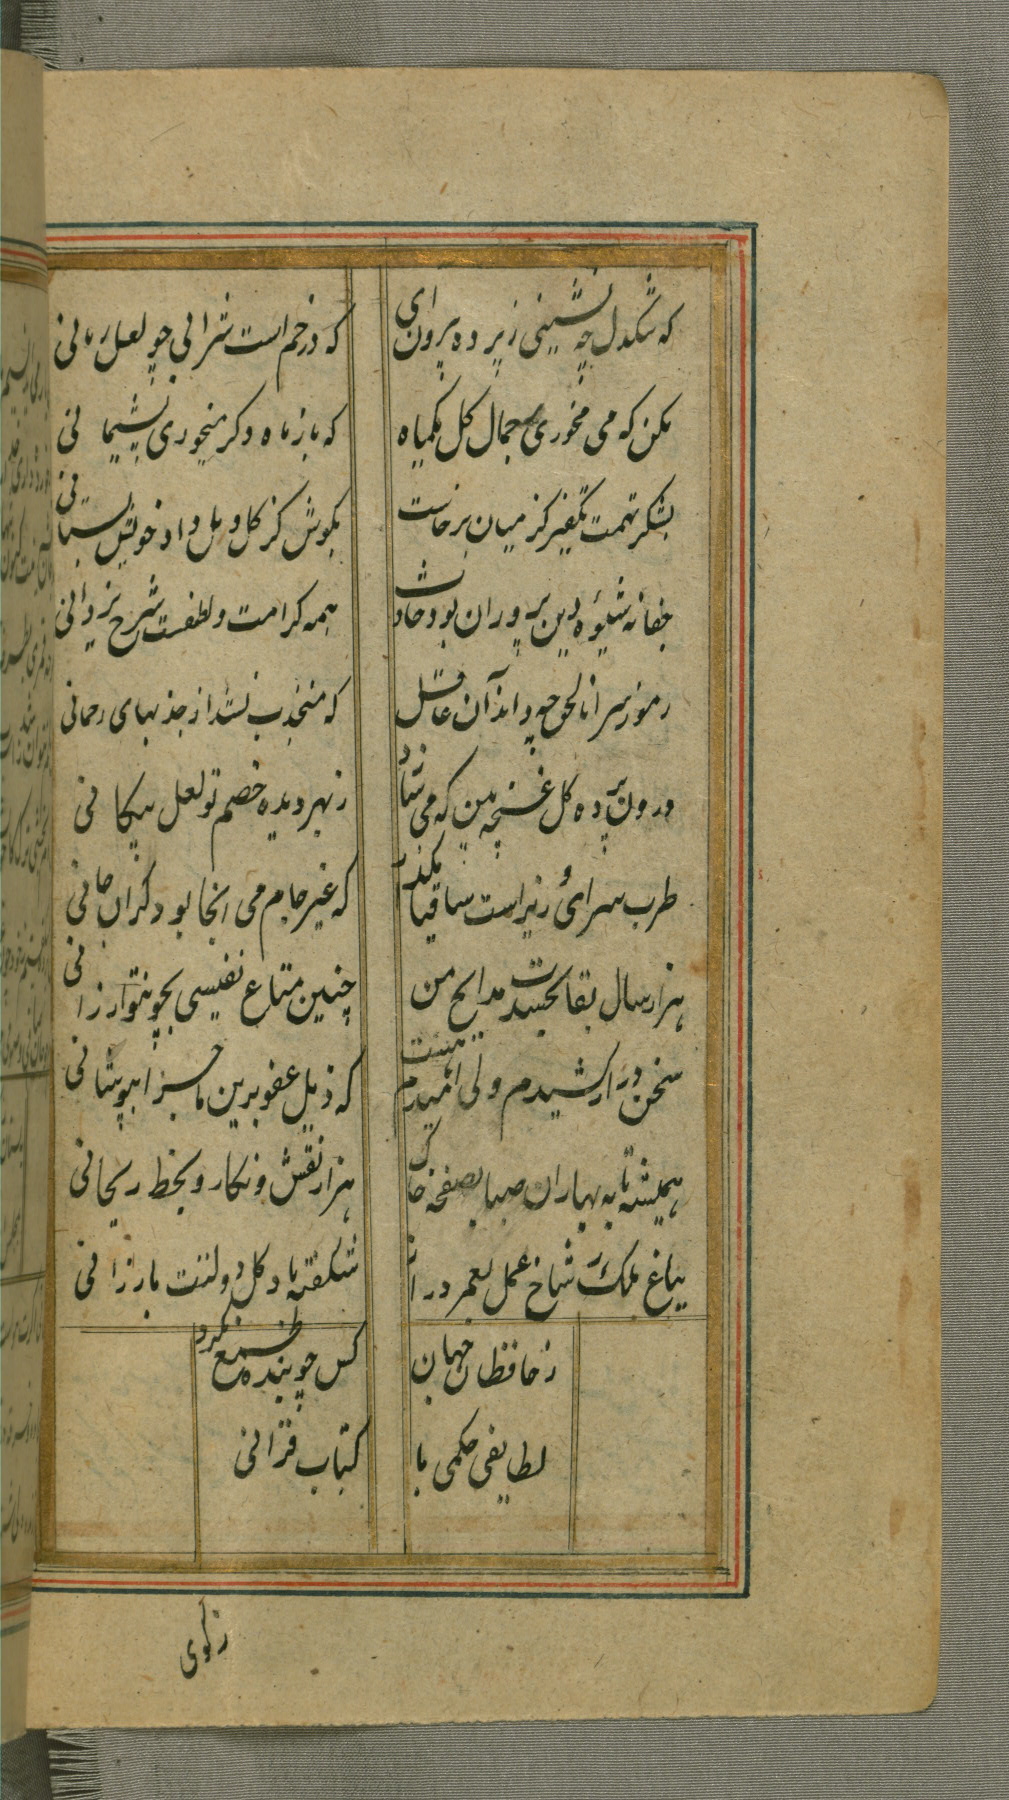 که تنگدل چه نشینی ز پرده بیرون ای
که در خم است شرابی چو لعل رمانی
مکن که می نخوری بجمال گل یکماه
که باز ماه دگر میخوری پشیمانی
بشکر تهمت تکفیر کز میان برخاست
بکوش کز گل و مل داد خویش بستانی
جفا نه شیوه دین پروران بود حاشا
همه کرامت و لطفست شرع یزدانی
رموز سر انا الحق چه داند آن غافل
که منجذب نشد از جذبهای رحمانی
درون پرده گل غنچه بین که می سازد
ز بهر دیده خصم تو لعل پیکانی
طرب سرای وزیر است ساقیا مگذار
که غیر جام می انجا بود گران جانی
هزار سال بقا بخشدت مدایح من
چنین متاع نفیسی بچو تو ارزانی
سخن دراز کشیدم ولی امیدم هست
که ذیل عفو برین ماجرا بپوشانی
همیشه تا به بهاران صبا بصفحه خاک
هزار نقش و نگار و بخط ریحانی
بباغ ملک ز شاخ عمل بعمر دراز
شکفته باد گل دولتت بارزانی
ز حافظان جهان
کس چو بنده جمع نکرد
لطایفی حکمی با
کتاب قرانی
ز کوی